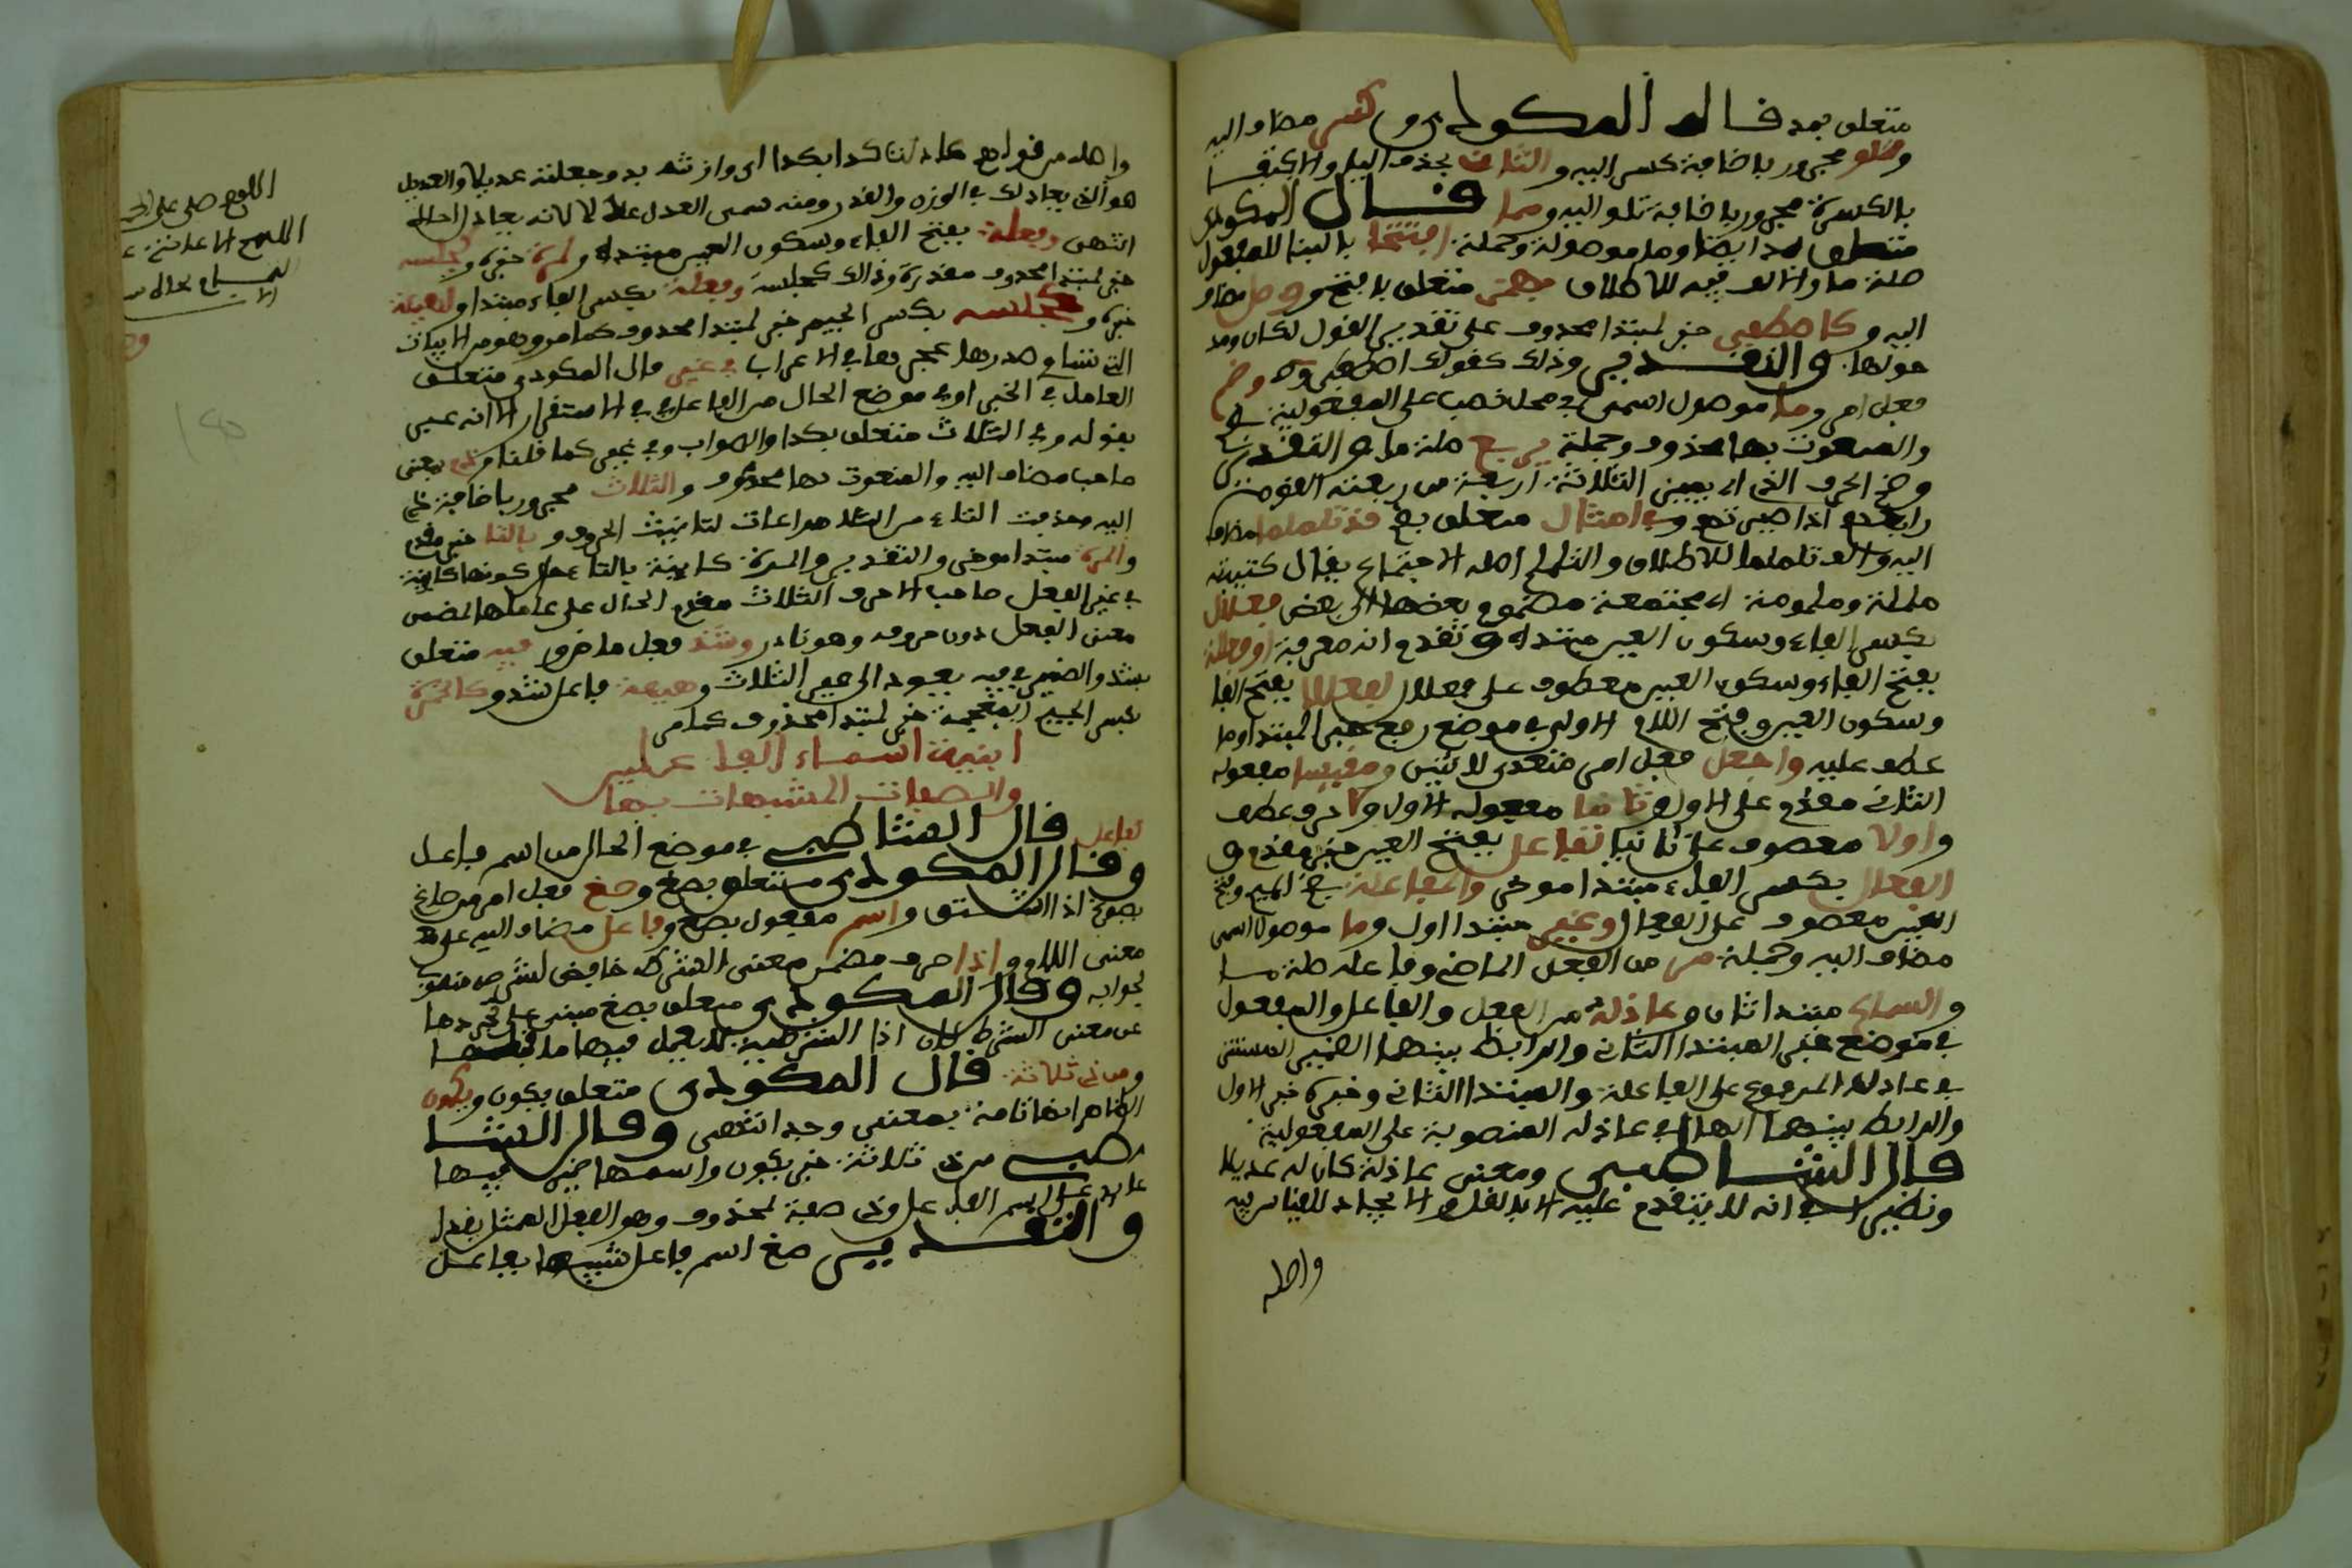 متعلق بمد قاله المكودي وكسر مضاف اليه
وتلو مجرور باضافة كسر اليه والثان بحذف الياء والاكتفا
بالكسرة مجرور باضافة تلو اليه ومما قال المكودي
متعلق بمد ايضا وما موصولة وجملة افتتحا بالبنا للمفعول
صلة ما والالف فيه للاطلاق بهمز متعلق بافتتح ووصل مضاف
اليه وكاصطفى خبر لمبتدا محذوف على تقدير القول لكان ومد
خولها والتقدير وذلك كقولك اصطفى وضم
فعل امر وما موصول اسمي في محل نصب على المفعولية بضم
والمنعوت بها محذوف وجملة يربع صلة ما والتقدير
وضم الحرف الذي يربع الثلاثة اربعة من ربعت القوم
رابعهم اذا صرت وفي امثال متعلق بضم قد تلملما مضاف
اليه والف تلملما للاطلاق والتلملم اصله الاجتماع يقال كتيبة
ململة وملمومة اي مجتمعة مضموم بعضها الى بعض فعلال
بكسر الفاء وسكون العين مبتدا وتقدم انه معرفة او فعللة
بفتح الفاء وسكون العين معطوف على فعلال لفعللا بفتح الفا
وسكون العين وفتح اللام الاولى في موضع رفع خبر المبتدا وما
عطف عليه واجعل فعل امر متعدي لاثنين ومقيسا مفعوله
الثاني مقدم على الاول وثانيا مفعوله الاول ولا حرف عطف
واولا معطوف على ثانيا لفاعل بفتح العين خبر مقدم و
الفعال بكسر الفاء مبتدا موخر والمفاعلة بضم الميم وفتح
العين معطوف على الفعال وغير مبتدا اول وما موصول اسمي
مضاف اليه وجملة مر من الفعل الماضي وفاعله صلة ما
والسماع مبتدا ثان وعادله من الفعل والفاعل والمفعول
في موضع خبر المبتدا الثاني والرابط بينهما الضمير المستتر
في عادله المرفوع على الفاعلة والمبتدا الثاني وخبره خبر الاول
والرابط بينهما الهاء في عادله المنصوبة على المفعولية
قال الشاطبي ومعنى عادله كان له عديلا
ونظيرا اي انه لا يتقدم عليه الا بالنقل والا يجاء للقياس فيه
واصله
واصله من قولهم عادلت كذا بكذا اي وازنته به وجعلته عديلا والعديل
هو الذي يعادلك في الوزن والقدر ومنه سمي العدل عدلا لانه يعادل الحال
انتهى وفعلة بفتح الفاء وسكون العين مبتدا ولمرة خبره وكجلسه
خبر لمبتدا محذوف مقدرة وذلك كجلسة وفعلة بكسر الفاء مبتدا ولهيئة
خبره وكجلسه بكسر الجيم خبر لمبتدا محذوف كما مر وهو من الابيات
التي تساوى صدرها عجزها في الاعراب في غير قال المكودي متعلق
العامل في الخبر او في موضع الحال من الفاعل في الاستقرار الا انه عبر
بقوله وفي الثلاث متعلق بكذا والصواب وفي غير كما قلنا وذي بمعنى
صاحب مضاف اليه والمنعوت بها محذوف والثلاث مجرور باضافة ذي
اليه وحذفت التاء من الثلاث مراعات لتانيث الحروف وبالتا خبر مقدم
والمرة مبتدا موخر والتقدير والمرة كاينة بالتاء حال كونها كاينة
في غير الفعل صاحب الاحرف الثلاث مقدم الحال على عاملها المضمن
معنى الفعل دون حروفه وهو نادر وشذ فعل ماض و فيه متعلق
بشذ والضمير في فيه يعود الى غير الثلاث وهيئة فاعل شذ وكالخمرة
بكسر الخاء المعجمة خبر لمبتدا محذوف كما مر
ابنية اسماء الفاعلين
والصفات المشبهات بها
كفاعل قال الشاطبي في موضع الحال من اسم فاعل
وقال المكودي متعلق بصغ وصغ فعل امر من صاغ
يصوغ اذا اشتق واسم مفعول بصغ وفاعل مضاف اليه على
معنى اللام واذا حرف مضمن معنى الشرط خافض لشرطه منصوب
لجوابه وقال المكودي متعلق بصغ مبني على تجردها
عن معنى الشرط لان اذا الشرطية لا يعمل فيها ما قبلها
ومن ذي ثلاثة قال المكودي متعلق بيكون ويكون
الظاهر انها تامة بمعنى وجد انتهى وقال الشا
طبي من ذي ثلاثة خبر يكون واسمها ضمير فيها
عايد على اسم الفاعل وذي صفة لمحذوف وهو الفعل الممثل بغذا
والتقدير صغ اسم فاعل شبيها بفاعل
اللهم صلى على